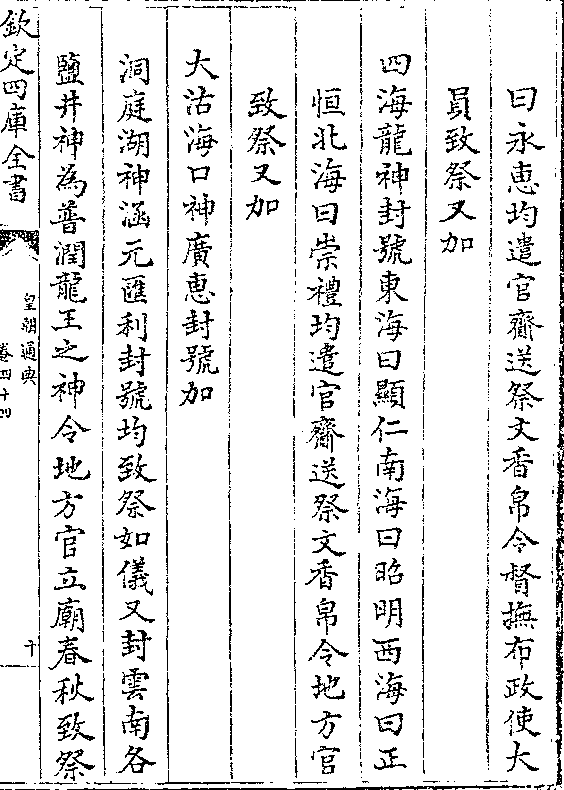 曰永恵均遣官齎送祭文香帛令督撫布政使大
員致祭又加
四海龍神封號東海曰顯仁南海曰昭明西海曰正
恒北海曰崇禮均遣官齎送祭文香帛令地方官
致祭又加
大沽海口神廣恵封號加
洞庭湖神涵元匯利封號均致祭如儀又封雲南各
鹽井神為普潤龍王之神令地方官立廟春秋致祭
欽定四庫全書
皇朝通典
卷四十四
十